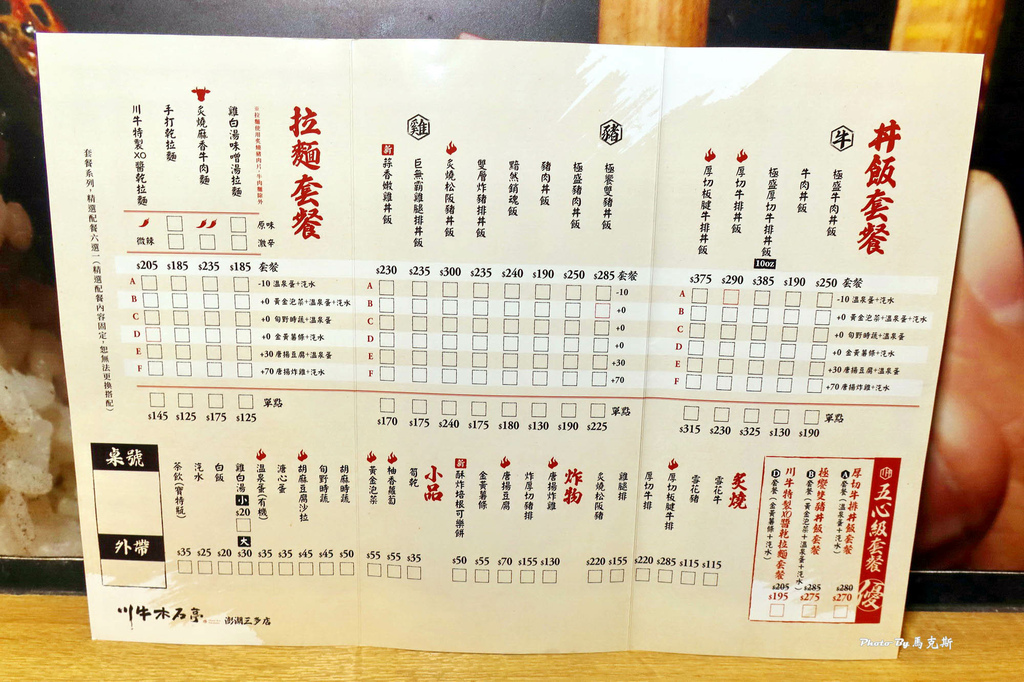 丼飯套餐
牛
極盛牛肉丼飯
牛肉丼飯
極盛厚切牛排丼飯
10oz
厚切牛排丼飯
厚切板腱牛排丼飯
$375 $290 $385 $190 $250 套餐
A -10 溫泉蛋+汽水
B +0 黃金泡菜+溫泉蛋+汽水
C +0 旬野時蔬+溫泉蛋
D +0 金黃薯條+汽水
E +30 唐揚豆腐+溫泉蛋
F +70 唐揚炸雞+汽水
單點
$315 $230 $325 $130 $190
豬
極饗雙豬丼飯
極盛豬肉丼飯
豬肉丼飯
黯然銷魂飯
雙層炸豬排丼飯
炙燒松阪豬丼飯
雞
巨無霸雞腿排丼飯
新 蒜香嫩雞丼飯
$230 $235 $300 $235 $240 $190 $250 $285 套餐
A -10
B +0
C +0
D +0
E +30
F +70
單點
$170 $175 $240 $175 $180 $130 $190 $225
拉麵套餐
※拉麵使用炙燒豬肉片，牛肉麵除外
雞白湯味噌湯拉麵
炙燒麻香牛肉麵
手打乾拉麵
川牛特製XO醬乾拉麵
原味
微辣 激辛
$205 $185 $235 $185 套餐
A -10 溫泉蛋+汽水
B +0 黃金泡菜+溫泉蛋+汽水
C +0 旬野時蔬+溫泉蛋
D +0 金黃薯條+汽水
E +30 唐揚豆腐+溫泉蛋
F +70 唐揚炸雞+汽水
單點
$145 $125 $175 $125
套餐系列，精選配餐六選一（精選配餐內容固定，恕無法更換搭配）
五心級套餐 優
厚切牛排丼飯套餐
A套餐（溫泉蛋+汽水）
$280
$270
極饗雙豬丼飯套餐
B套餐（黃金泡菜+溫泉蛋+汽水）
$285
$275
川牛特製XO醬乾拉麵套餐
D套餐（金黃薯條+汽水）
$205
$195
炙燒
雪花牛 $115
雪花豬 $115
厚切板腱牛排 $285
厚切牛排 $220
雞腿排 $155
炙燒松阪豬 $220
炸物
唐揚炸雞 $130
炸厚切豬排 $155
唐揚豆腐 $70
金黃薯條 $55
新 酥炸培根可樂餅 $50
小品
筍乾 $35
柚香蘿蔔 $55
黃金泡菜 $55
胡麻時蔬 $50
旬野時蔬 $45
胡麻豆腐沙拉 $45
溏心蛋 $35
溫泉蛋(有機) $35
雞白湯 小 $20 大 $30
白飯 $20
汽水 $25
茶飲(寶特瓶) $35
桌號
外帶
川牛木石亭 澎湖三多店
Photo By 馬克斯